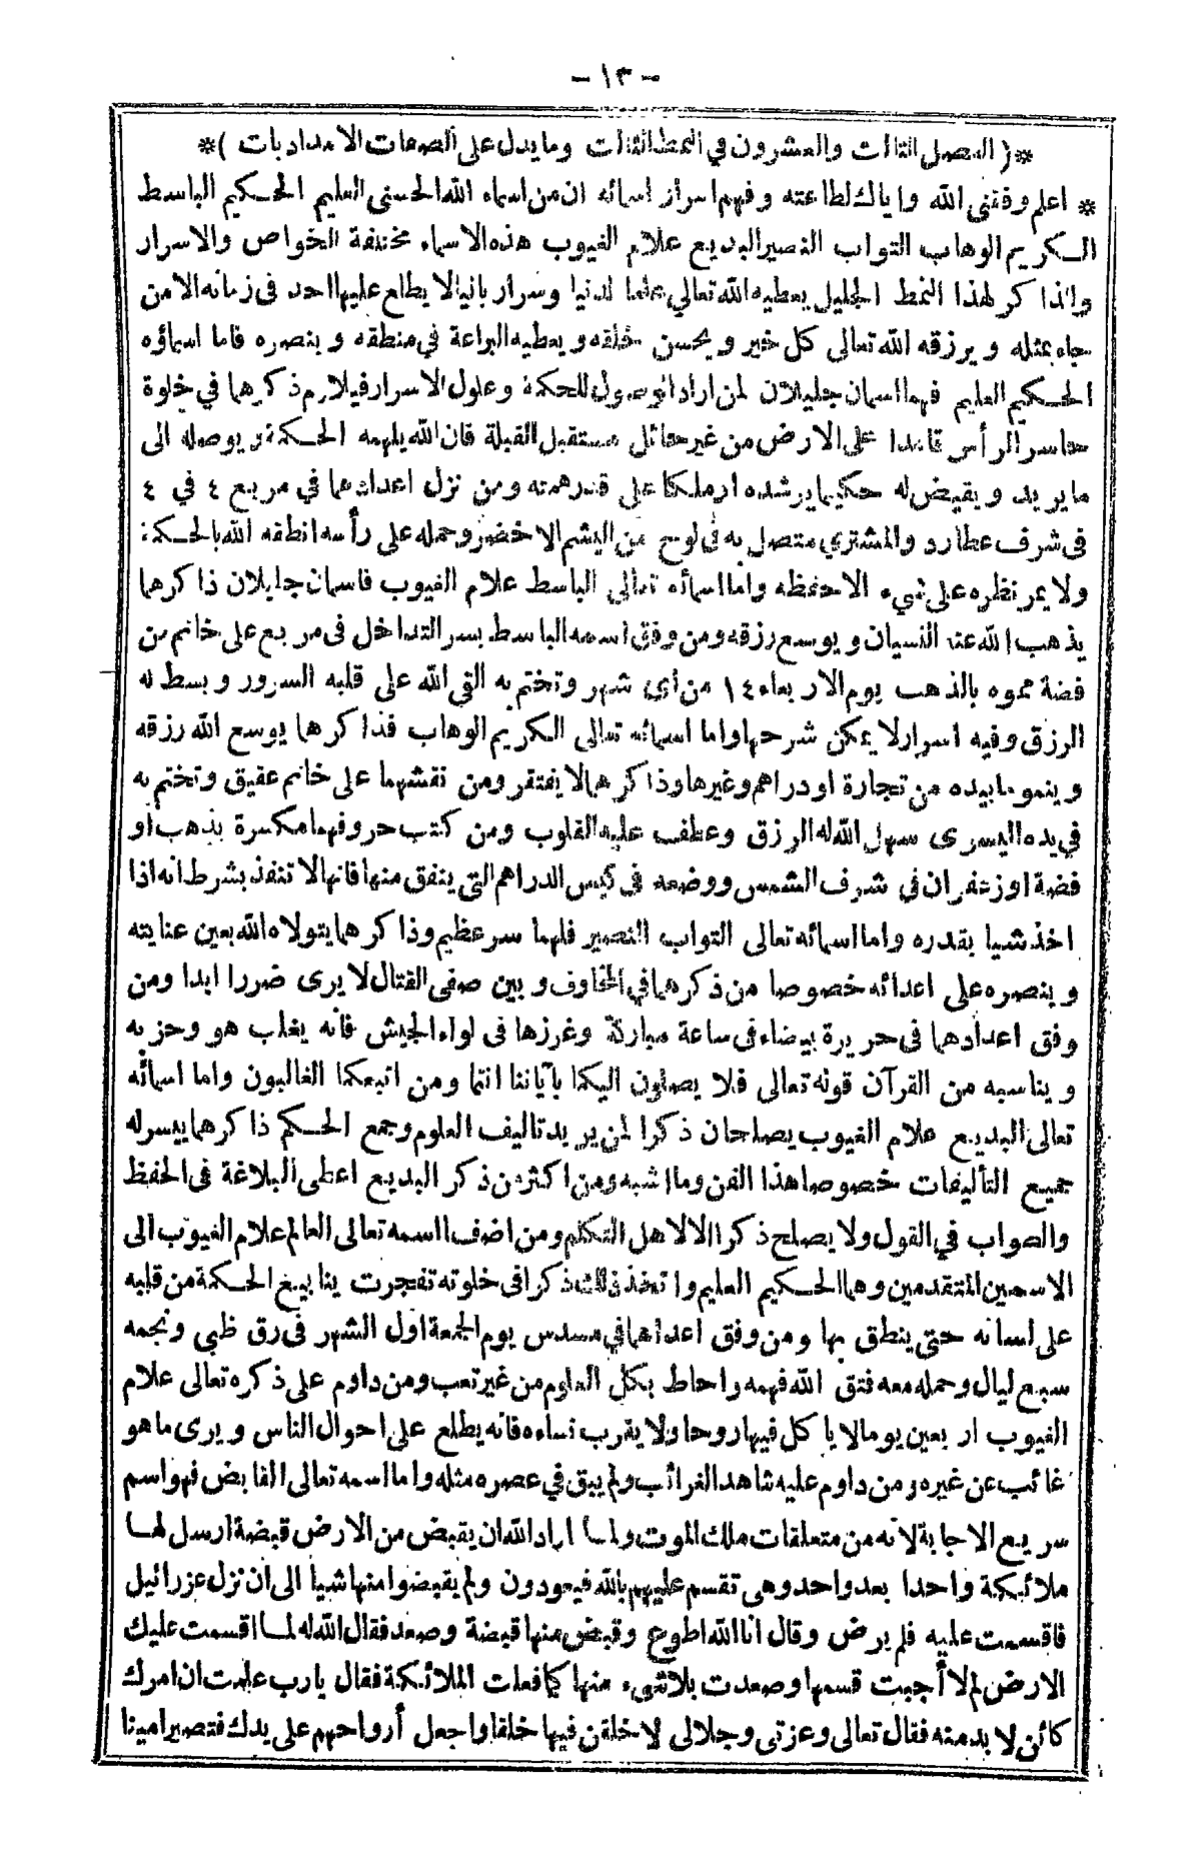 - ١٣ -
*( الفصل الثالث والعشرون في النمط الثالث وما يدل على الصفات الامداديات )*
* اعلم وفقني الله واياك لطاعته وفهم اسرار اسمائه ان من اسماء الله الحسنى العليم الحكيم الباسط
الكريم الوهاب التواب النصير البديع علام الغيوب هذه الاسماء مختلفة الخواص والاسرار
والذاكر لهذا النمط الجليل يعطيه الله تعالى علما لدنيا وسرا ربانيا لا يطلع عليها احد في زمانه الا من
جاء بمثله ويرزقه الله تعالى كل خير ويحسن خلقه ويعطيه البراعة في منطقه وينصره فاما اسماؤه
الحكيم العليم فهما اسمان جليلان لمن اراد الوصول للحكمة وعلوم الاسرار فيلازم ذكرهما في خلوة
حاسر الرأس قاعدا على الارض من غير حائل مستقبل القبلة فان الله يلهمه الحكمة ويوصله الى
ما يريد ويقيض له حكيما يرشده او ملكا على قدر همته ومن نزل اعدادهما في مربع ٤ في ٤
في شرف عطارد والمشتري متصل به في لوح من اليشم الاخضر وحمله على رأسه انطقه الله بالحكمة
ولا يمر نظره على شيء الا حفظه واما اسمائه تعالى الباسط علام الغيوب فاسمان جليلان ذاكرهما
يذهب الله عنه النسيان ويوسع رزقه ومن وفق اسمه الباسط بسر التداخل في مربع على خاتم من
فضة مموه بالذهب يوم الاربعاء ١٤ من أي شهر وتختم به القى الله على قلبه السرور وبسط له
الرزق وفيه اسرار لا يمكن شرحها واما اسمائه تعالى الكريم الوهاب فذاكرهما يوسع الله رزقه
وينمو ما بيده من تجارة او دراهم وغيرها وذاكرهما لا يفتقر ومن نقشهما على خاتم عقيق وتختم به
في يده اليسرى سهل الله له الرزق وعطف عليه القلوب ومن كتب حروفهما مكسرة بذهب او
فضة او زعفران في شرف الشمس ووضعه في كيس الدراهم التي ينفق منها فانها لا تنفذ بشرط انه اذا
اخذ شيا بقدره واما اسمائه تعالى التواب النصير فلهما سر عظيم وذاكرهما يتولاه الله بعين عنايته
وينصره على اعدائه خصوصا من ذكرهما في المخاوف وبين صفي القتال لا يرى ضررا ابدا ومن
وفق اعدادهما في حريرة بيضاء في ساعة مباركة وغرزها في لواء الجيش فانه يغلب هو وحزبه
ويناسبه من القرآن قوله تعالى فلا يصلون اليكما بآياتنا انتما ومن اتبعكما الغالبون واما اسمائه
تعالى البديع علام الغيوب يصلحان ذكرا لمن يريد تاليف العلوم وجمع الحكم ذاكرهما ييسر له
جميع التأليفات خصوصا هذا الفن وما اشبه ومن اكثر من ذكر البديع اعطى البلاغة في الحفظ
والصواب في القول ولا يصلح ذكرا الا لاهل التكلم ومن اضف اسمه تعالى العالم علام الغيوب الى
الاسمين المتقدمين وهما الحكيم العليم واتخذ ذلك ذكرا في خلوته تفجرت ينابيع الحكمة من قلبه
على لسانه حتى ينطق بها ومن وفق اعداهما في مسدس يوم الجمعة اول الشهر في رق ظبي ونجمه
سبع ليال وحمله معه فتق الله فهمه واحاط بكل العلوم من غير تعب ومن داوم على ذكره تعالى علام
الغيوب اربعين يوما لا ياكل فيها روحا ولا يقرب نساءه فانه يطلع على احوال الناس ويرى ما هو
غائب عن غيره ومن داوم عليه شاهد الغرائب ولم يبق في عصره مثله واما اسمه تعالى القابض فهو اسم
سريع الاجابة لانه من متعلقات ملك الموت ولما اراد الله ان يقبض من الارض قبضة ارسل لها
ملائكة واحدا بعد واحد وهى تقسم عليهم بالله فيعودون ولم يقبضوا منها شيأ الى ان نزل عزرائيل
فاقسمت عليه فلم يرض وقال انا الله اطوع وقبض منها قبضة وصعد فقال الله له لما اقسمت عليك
الارض لم لا أجبت قسمها وصعدت بلا شيء منها كما فعلت الملائكة فقال يارب علمت ان امرك
كائن لا بد منه فقال تعالى وعزتي وجلالى لاخلقن فيها خلقا واجعل أرواحهم على يدك فتصير امينا